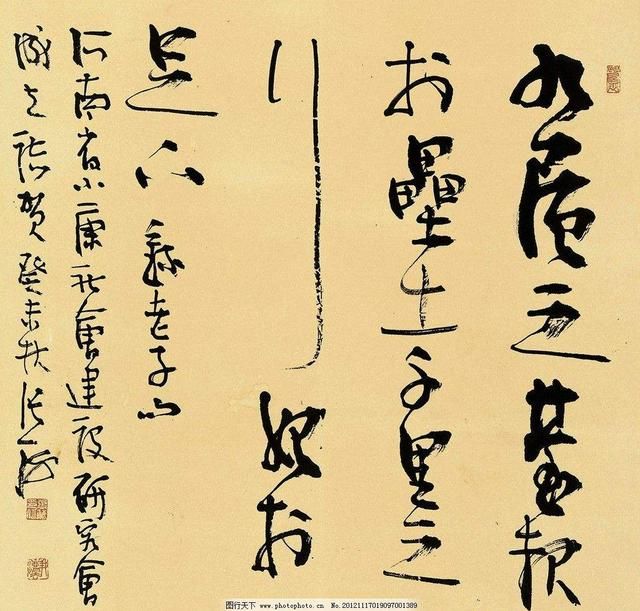 九層之臺起
於壘土千里之
行始於
足下 錄老子句
河南省小康社會建設研究會
成立誌賀癸未秋張海
图行天下 www.photophoto.cn No.20121117019097001389